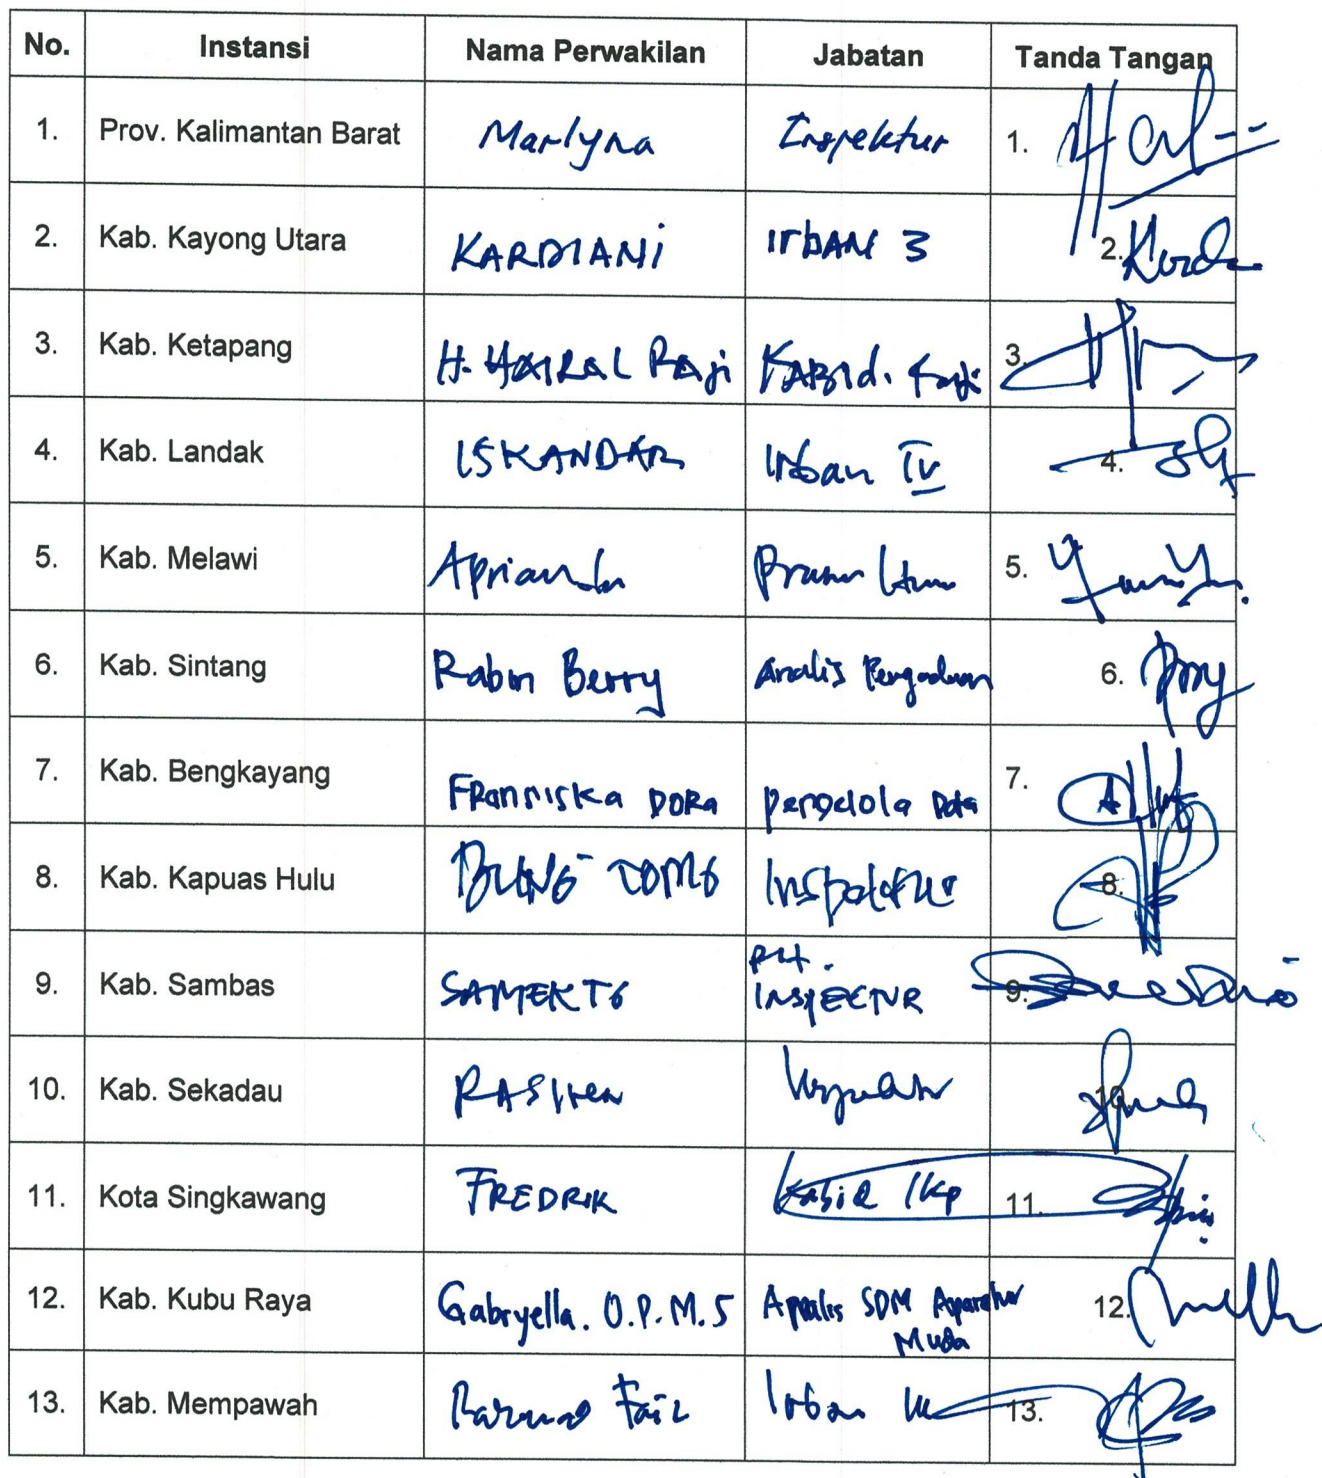 No. Instansi Nama Perwakilan Jabatan Tanda Tangan
1. Prov. Kalimantan Barat Marlyna Inspektur 1.
2. Kab. Kayong Utara KARDIANI IrBAN 3 2.
3. Kab. Ketapang H. HAIRAL Raji KABId. 3.
4. Kab. Landak ISKANDAR Irban IV 4.
5. Kab. Melawi 5.
6. Kab. Sintang Robin Berry Analis Pengaduan 6.
7. Kab. Bengkayang Franniska DORA pengelola Data 7.
8. Kab. Kapuas Hulu BUNG TOMO Inspektur 8.
9. Kab. Sambas SAMEKTO PLT. 9.
INSPEKTUR
10. Kab. Sekadau 10.
11. Kota Singkawang FREDRIK Kabid IKP 11.
12. Kab. Kubu Raya Gabryella. O.P.M.S Analis SDM Aparatur 12.
Muda
13. Kab. Mempawah Faiz Irban 13.